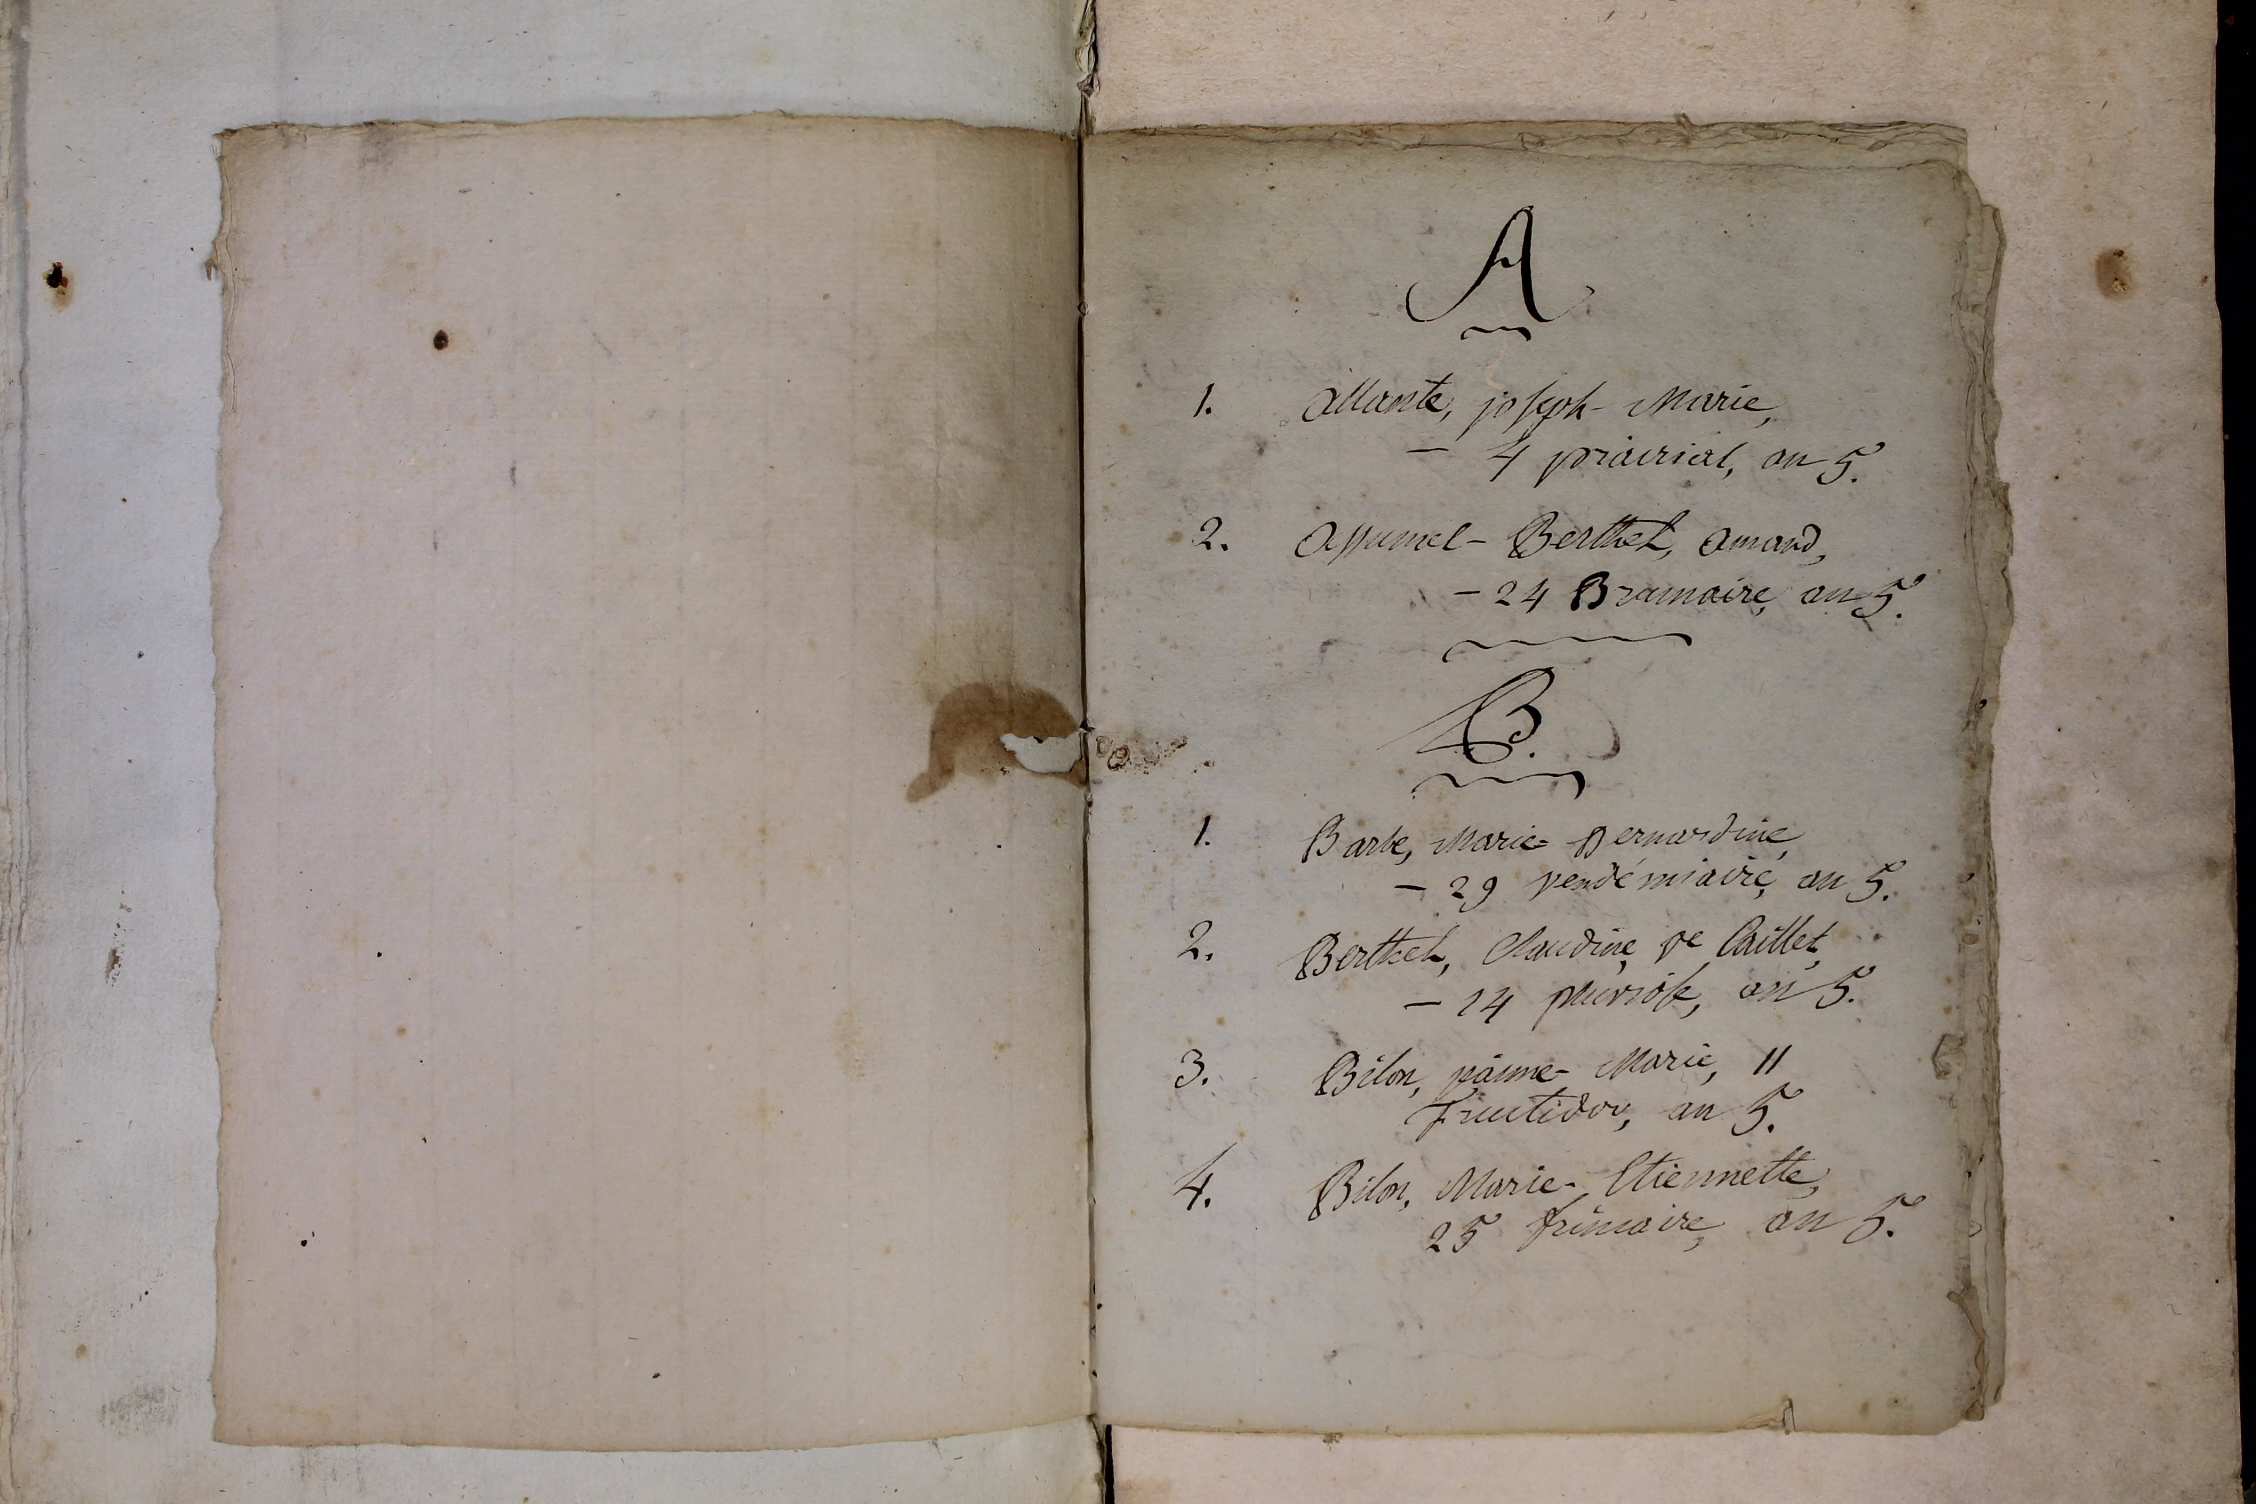 A
1. Allante, joseph-Marie,
- 4 prairial, an 5.
2. Appumel-Berthet, amand,
- 24 Brumaire, an 5.
B.
1. Barbe, Marie-Bernardine,
- 29 vendémiaire, an 5.
2. Berthet, Claudine, ve Caillet,
- 14 pluviôse, an 5.
3. Bilon, jeanne-Marie, 11
fructidor, an 5.
4. Bilon, Marie-Etiennette,
25 frimaire, an 5.